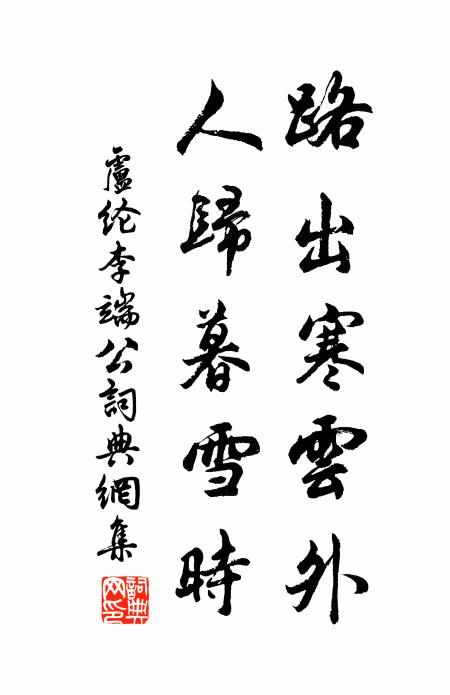 路出寒雲外
人歸暮雪時
盧纶李端公詞典網集
詞典網印